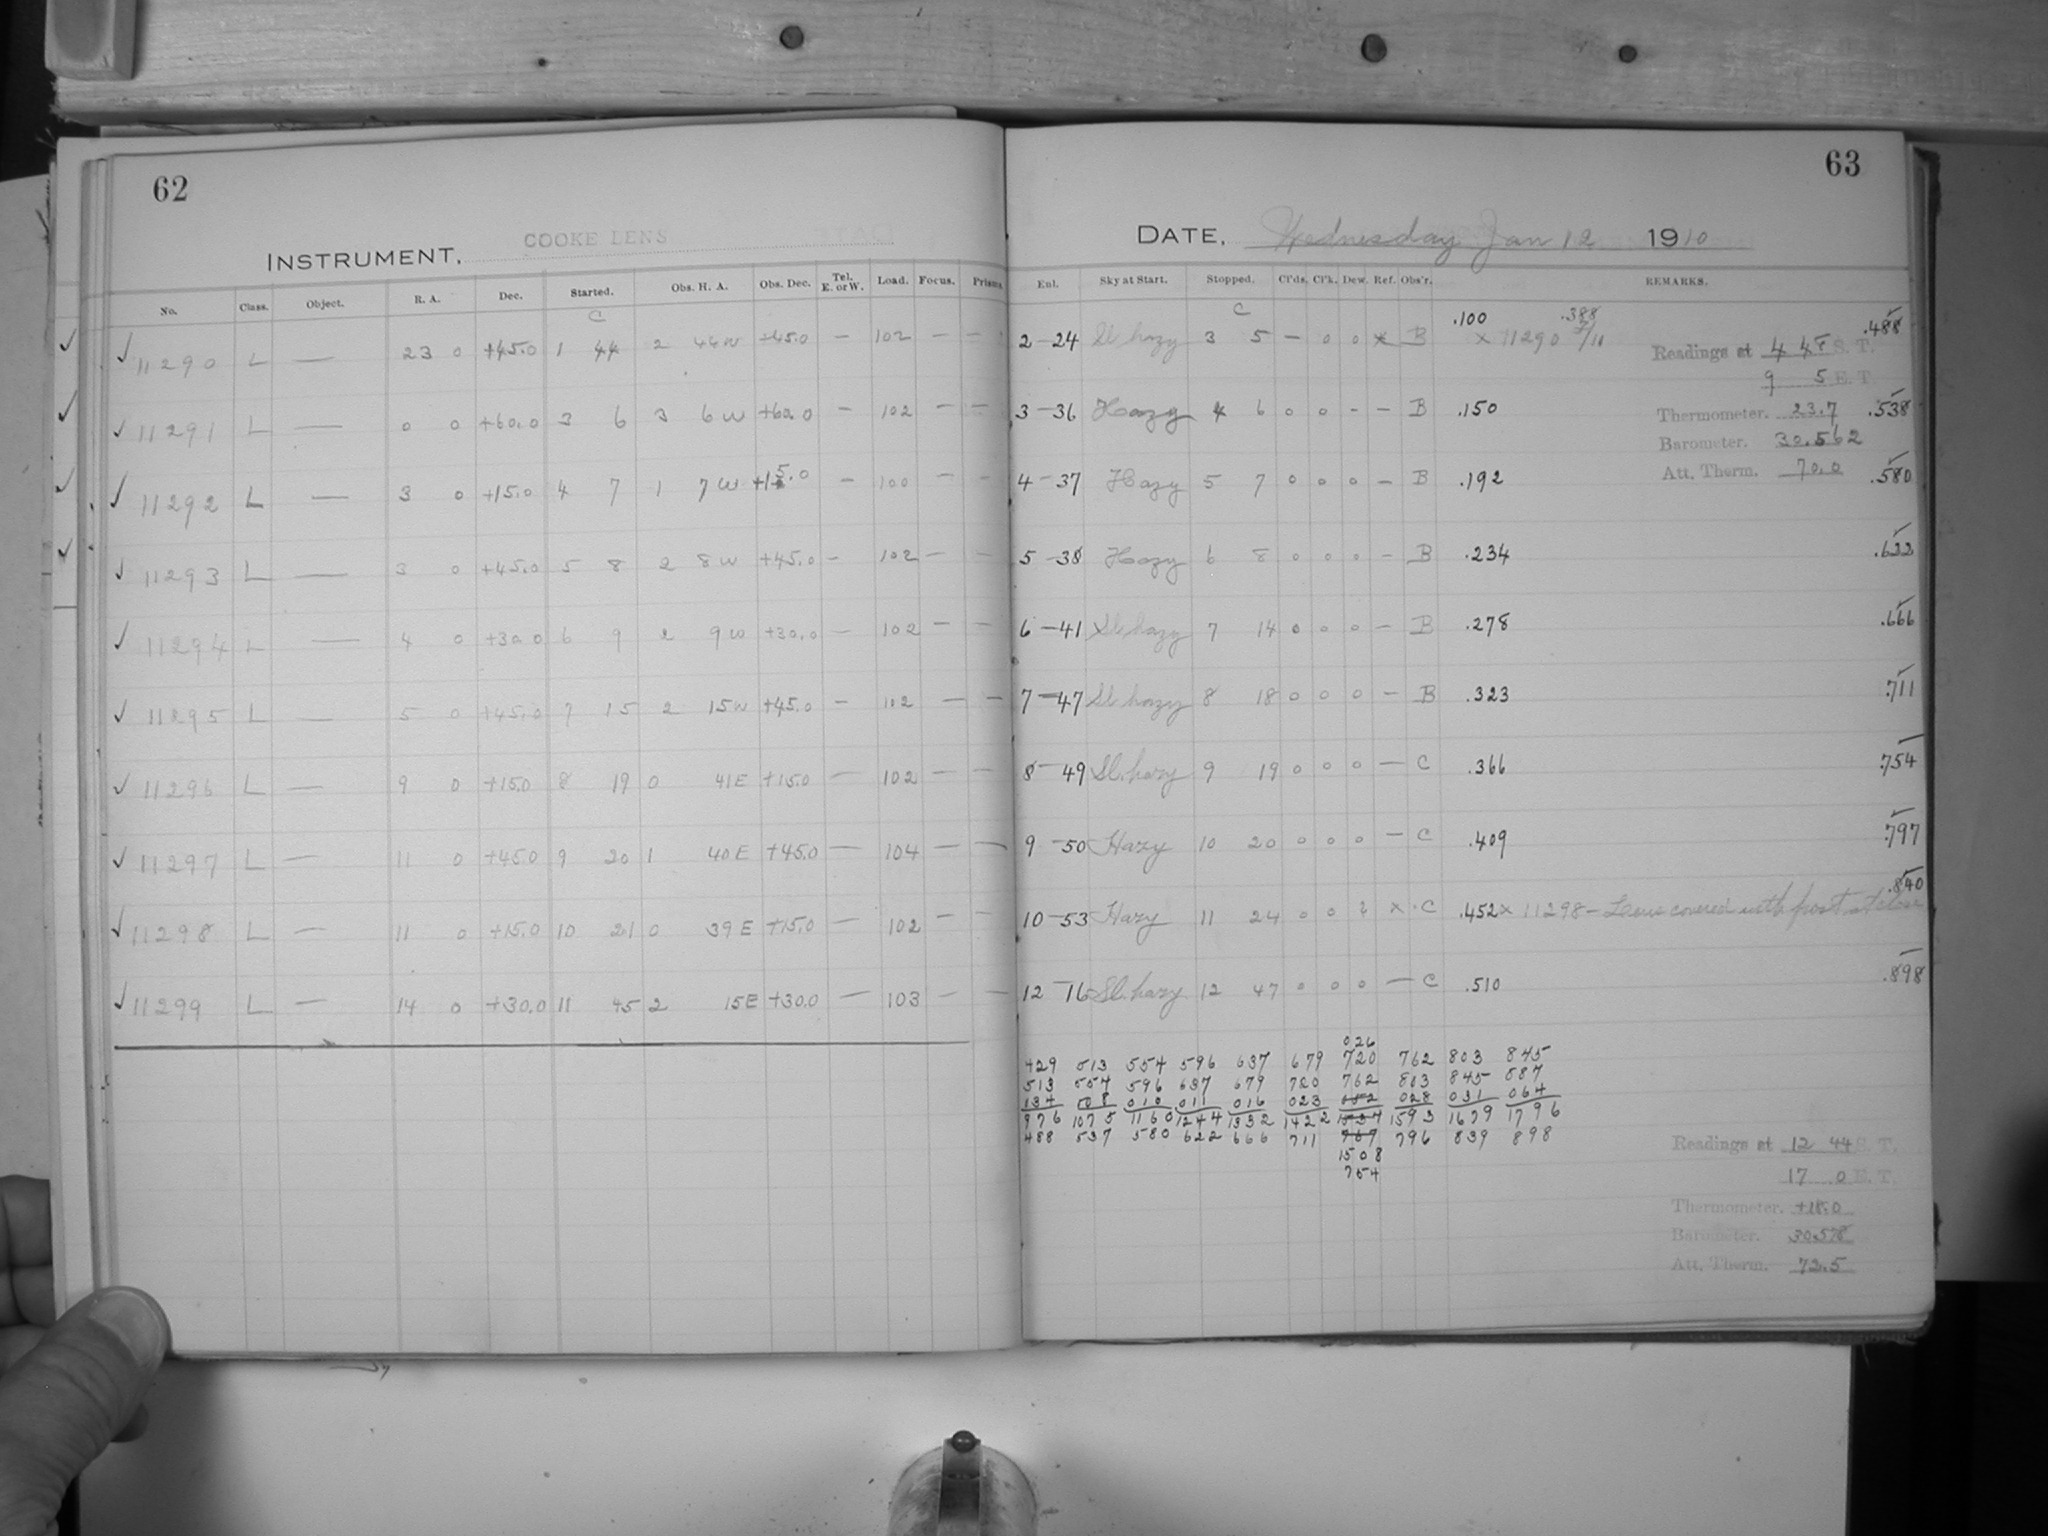 62
INSTRUMENT, COOKE LENS
No. Class. Object. R. A. Dec. Started. Obs. H. A. Obs. Dec. Tel. E. or W. Load. Focus. Prisms.
C
✓ ✓ 11290 L — 23 0 +45.0 1 44 2 44W +45.0 — 102 — —
✓ ✓ 11291 L — 0 0 +60.0 3 6 3 6W +60.0 — 102 — —
✓ ✓ 11292 L — 3 0 +15.0 4 7 1 7W +15.0 — 100 — —
✓ ✓ 11293 L — 3 0 +45.0 5 8 2 8W +45.0 — 102 — —
✓ 11294 L — 4 0 +30.0 6 9 2 9W +30.0 — 102 — —
✓ 11295 L — 5 0 +45.0 7 15 2 15W +45.0 — 102 — —
✓ 11296 L — 9 0 +15.0 8 19 0 41E +15.0 — 102 — —
✓ 11297 L — 11 0 +45.0 9 20 1 40E +45.0 — 104 — —
✓ 11298 L — 11 0 +15.0 10 21 0 39E +15.0 — 102 — —
✓ 11299 L — 14 0 +30.0 11 45 2 15E +30.0 — 103 — —
63
DATE, Wednesday Jan 12 1910
Enl. Sky at Start. Stopped. Cl'ds. Cl'k. Dew. Ref. Obs'r. REMARKS.
C .100 .388
2-24 Sl. hazy 3 5 — 0 0 x B x 11290 .488
Readings at 4 45 S. T.
9 5 E. T.
3-36 Hazy 4 6 0 0 - - B .150 Thermometer. 23.7 .538
Barometer. 30.562
4-37 Hazy 5 7 0 0 0 - B .192 Att. Therm. 70.0 .580
5-38 Hazy 6 8 0 0 0 - B .234 .622
6-41 Sl. hazy 7 14 0 0 0 - B .278 .666
7-47 Sl. hazy 8 18 0 0 0 - B .323 .711
8-49 Sl. hazy 9 19 0 0 0 — C .366 .754
9-50 Hazy 10 20 0 0 0 — C .409 .797
10-53 Hazy 11 24 0 0 ? x C .452 x 11298 - Lens covered with frost at close .840
12-16 Sl. hazy 12 47 0 0 0 — C .510 .898
026
429 513 554 596 637 679 720 762 803 845
513 554 596 637 679 720 762 803 845 887
034 008 010 011 016 023 052 028 031 064
976 1075 1160 1244 1332 1422 1534 1593 1679 1796
488 537 580 622 666 711 767 796 839 898
1508
754
Readings at 12 44 S. T.
17 0 E. T.
Thermometer. +18.0
Barometer. 30.578
Att. Therm. 72.5